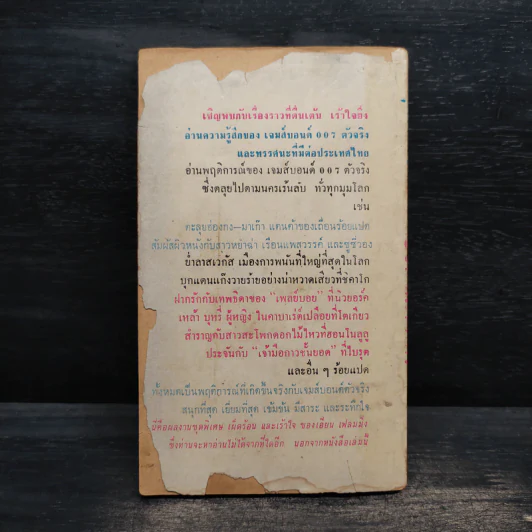 เชิญพบกับเรื่องราวที่ตื่นเต้น เร้าใจยิ่ง
อ่านความรู้สึกของ เจมส์บอนด์ ๐๐๗ ตัวจริง
และทรรศนะที่มีต่อประเทศไทย
อ่านพฤติการณ์ของ เจมส์บอนด์ ๐๐๗ ตัวจริง
ซึ่งตลุยไปตามนครเร้นลับ ทั่วทุกมุมโลก
เช่น
ตะลุยฮ่องกง—มาเก๊า แดนค้าของเถื่อนร้อยแปด
สัมผัสผิวหนังกับสาวหยำฉ่า เรือนแพสวรรค์ และซูซี่วอง
ย่ำลาสเวกัส เมืองการพนันที่ใหญ่ที่สุดในโลก
บุกแดนแก๊งวายร้ายอย่างน่าหวาดเสียวที่ชิคาโก
ฝากรักกับเทพธิดาของ "เพลย์บอย" ที่นิวยอร์ค
เหล้า บุหรี่ ผู้หญิง ในคาบาเร่ต์เปลือยที่โตเกียว
สำราญกับสาวสะโพกดอกไม้ไหวที่ฮอนโนลูลู
ประจันกับ "เจ้ามือกาวชั้นยอด" ที่ไบรุต
และอื่น ๆ ร้อยแปด
ทั้งหมดเป็นพฤติการณ์ที่เกิดขึ้นจริงกับเจมส์บอนด์ตัวจริง
สนุกที่สุด เยี่ยมที่สุด เข้มข้น มีสาระ และระทึกใจ
นี่คือผลงานชุดพิเศษ เผ็ดร้อน และเร้าใจ ของเอียน เฟลมมิ่ง
ซึ่งท่านจะหาอ่านไม่ได้จากที่ใดอีก นอกจากหนังสือเล่มนี้